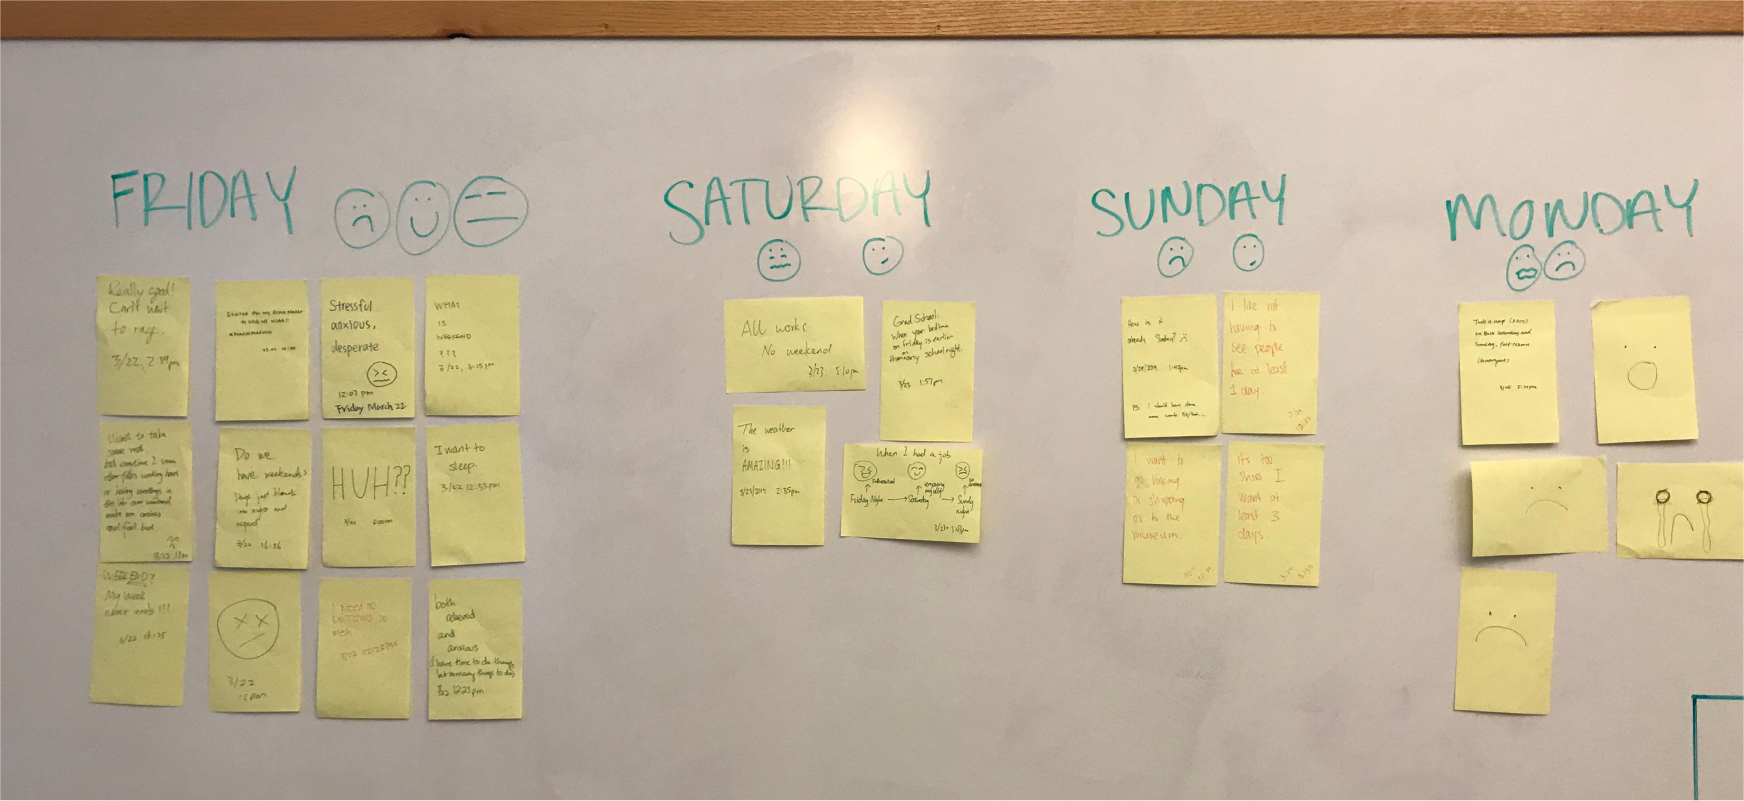 FRIDAY
Really good!
Can't wait
to rage.
3/22, 2
Excited for my Alma Mater
Stressful,
anxious,
desperate
12:07 pm
Friday March 22
WHAT
IS
WEEKEND
???
3/22,
Want to take
some rest
but sometime I
working hours
or having meetings in
the
make me
and feel bad.
3/22
Do we
have weekends?
Days just blends
into nights and
repeat
3/22 16:26
HUH??
3/22
I want to
sleep.
3/22 12:33pm
WEEKEND?
My week
never ends!!!
3/22
3/22
12pm
I NEED TO
3/22 12:22pm
both
relieved
and
anxious
I have time to do things,
but so many things to do
3/22 12:23pm
SATURDAY
All works
No weekend
3/23, 5:10pm
Grad School:
When your bedtime
on Friday is earlier
on
school night.
3/23 1:57pm
The weather
is
AMAZING!!!
3/23/2019 2:35pm
When I had a job
Friday Night
Saturday
enjoying
myself!
Sunday
night
SUNDAY
How is it
already Sunday? :(
3/24/2019
PS: I should have done
more work
I like not
having to
see people
for at least
1 day.
I want to
go hiking
or shopping
or to the
museum.
it's too
short I
want at
least 3
days.
MONDAY
on both Saturday and
Sunday,